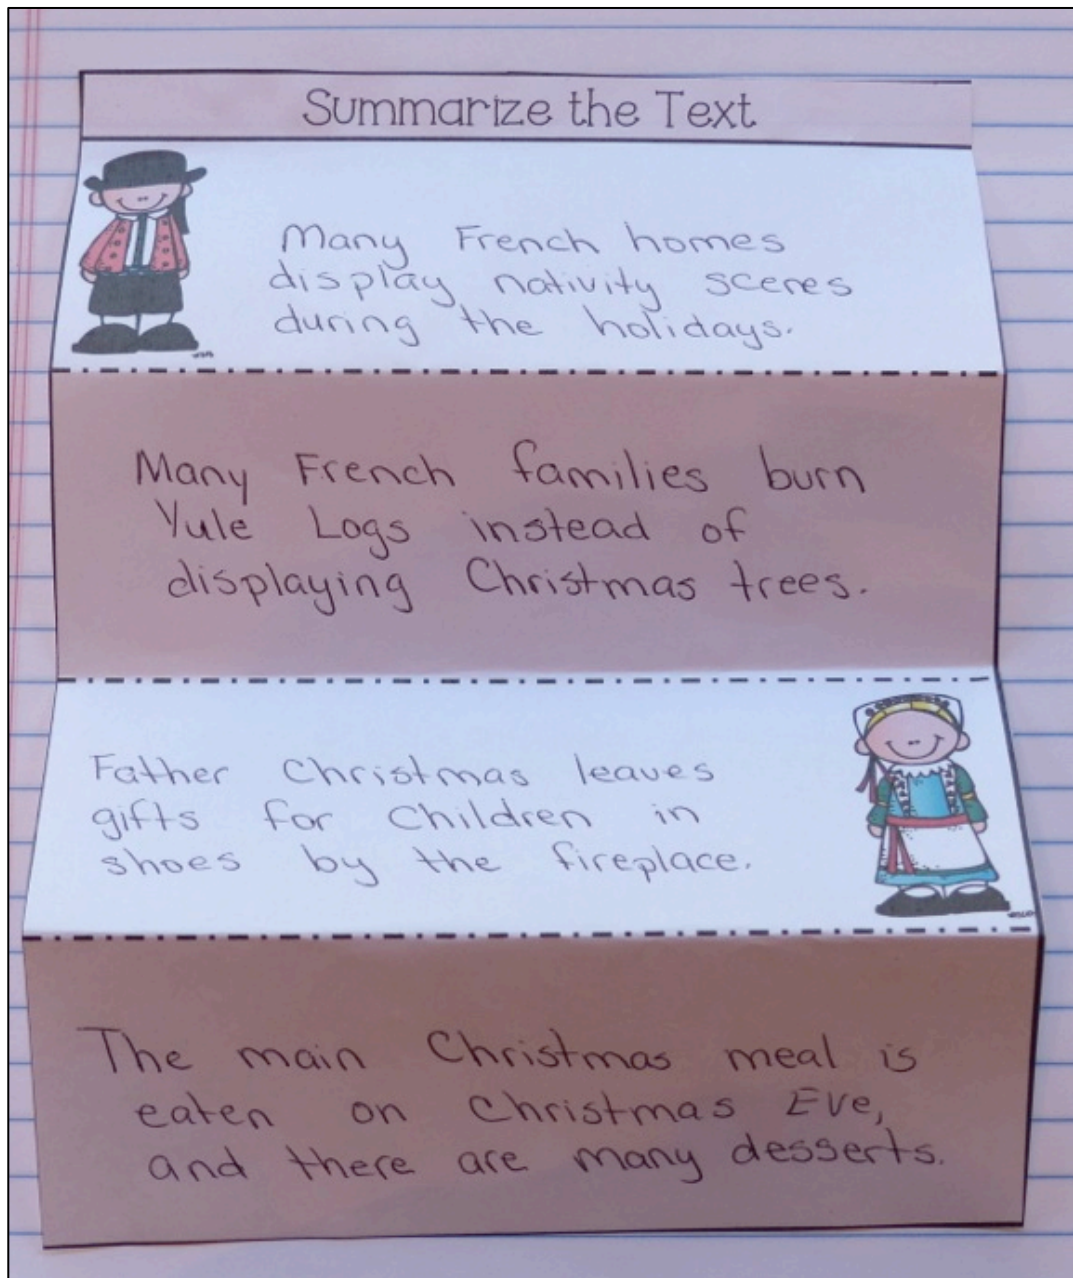 Summarize the Text
Many French homes
display nativity scenes
during the holidays.
Many French families burn
Yule Logs instead of
displaying Christmas trees.
Father Christmas leaves
gifts for children in
shoes by the fireplace.
The main Christmas meal is
eaten on Christmas Eve,
and there are many desserts.